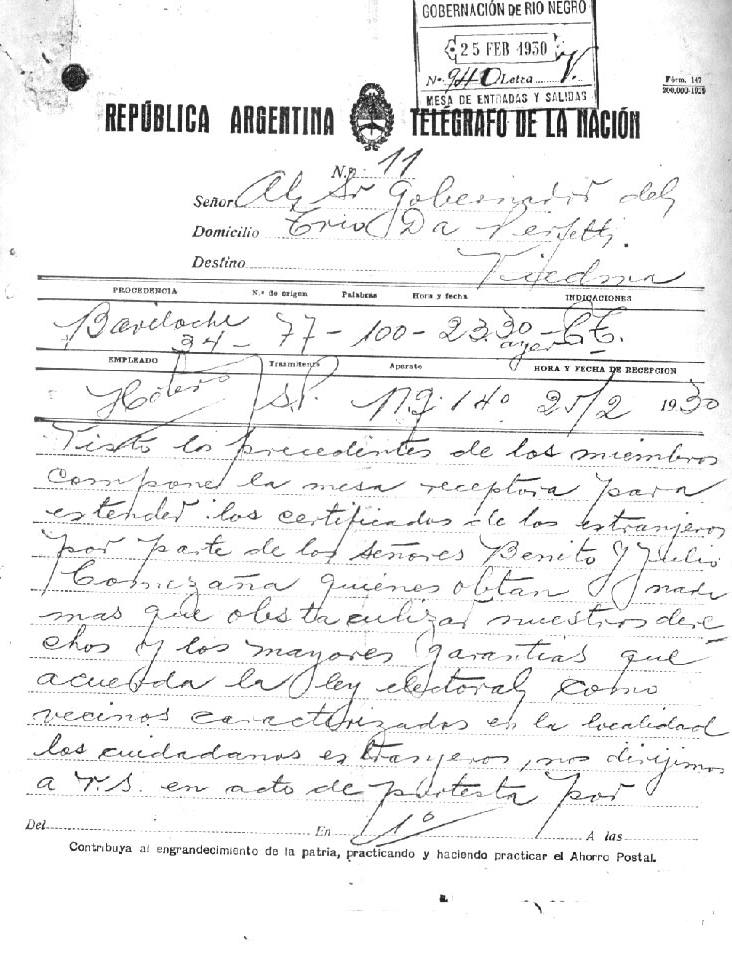 GOBERNACIÓN DE RIO NEGRO
25 FEB 1930
Nº 940 Letra V.
MESA DE ENTRADAS Y SALIDAS
Fórm. 147
200.000-1929
REPÚBLICA ARGENTINA TELÉGRAFO DE LA NACIÓN
N.º 11
Señor Al Sr Gobernador del
Domicilio Trio Da
Destino Viedma
PROCEDENCIA N.º de origen Palabras Hora y fecha INDICACIONES
Bariloche 77 - 100 - 23.30 -
34 - ayer
EMPLEADO Trasmitente Aparato HORA Y FECHA DE RECEPCION
14º 25/2 1930
Visto los precedentes de los miembros
componen la mesa receptora para
estender los certificados de los estranjeros
por parte de los señores Benito y Julio
Comezaña quienes obtan nada
mas que obstaculizar nuestros dere
chos y los mayores garantias que
acuerda la ley electoral como
vecinos caracterizados en la localidad
los cuidadanos estranjeros, nos dirijimos
a V.S. en acto de purtesta por
Del En 1º A las
Contribuya al engrandecimiento de la patria, practicando y haciendo practicar el Ahorro Postal.